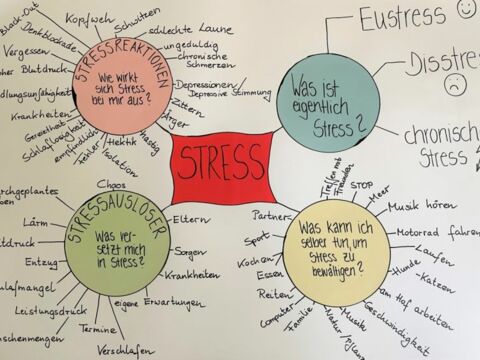 STRESS
STRESSREAKTIONEN
Wie wirkt
sich Stress
bei mir aus?
Black-Out
Kopfweh
Schwitzen
schlechte Laune
ungeduldig
chronische
Schmerzen
Depressionen
Depressive Stimmung
Zittern
Ärger
hastig
Hektik
Isolation
Fehler
empfindlich
Schlaflosigkeit
Gereiztheit
Krankheiten
Blutdruck
Vergessen
Denkblockade
Was ist
eigentlich
Stress?
Eustress
Disstre
chronisch
Stress
STRESSAUSLÖSER
Was ver-
setzt mich
in Stress?
Chaos
Eltern
Sorgen
Krankheiten
eigene Erwartungen
Verschlafen
Termine
Leistungsdruck
Entzug
Lärm
Was kann ich
selber tun, um
Stress zu
bewältigen?
Treffen mit
Freunden
STOP
Meer
Musik hören
Motorrad fahren
Laufen
Hunde
Katzen
am Hof arbeiten
Geschwindigkeit
Musik
Natur
Familie
Computer
Reiten
Essen
Kochen
Sport
Partner